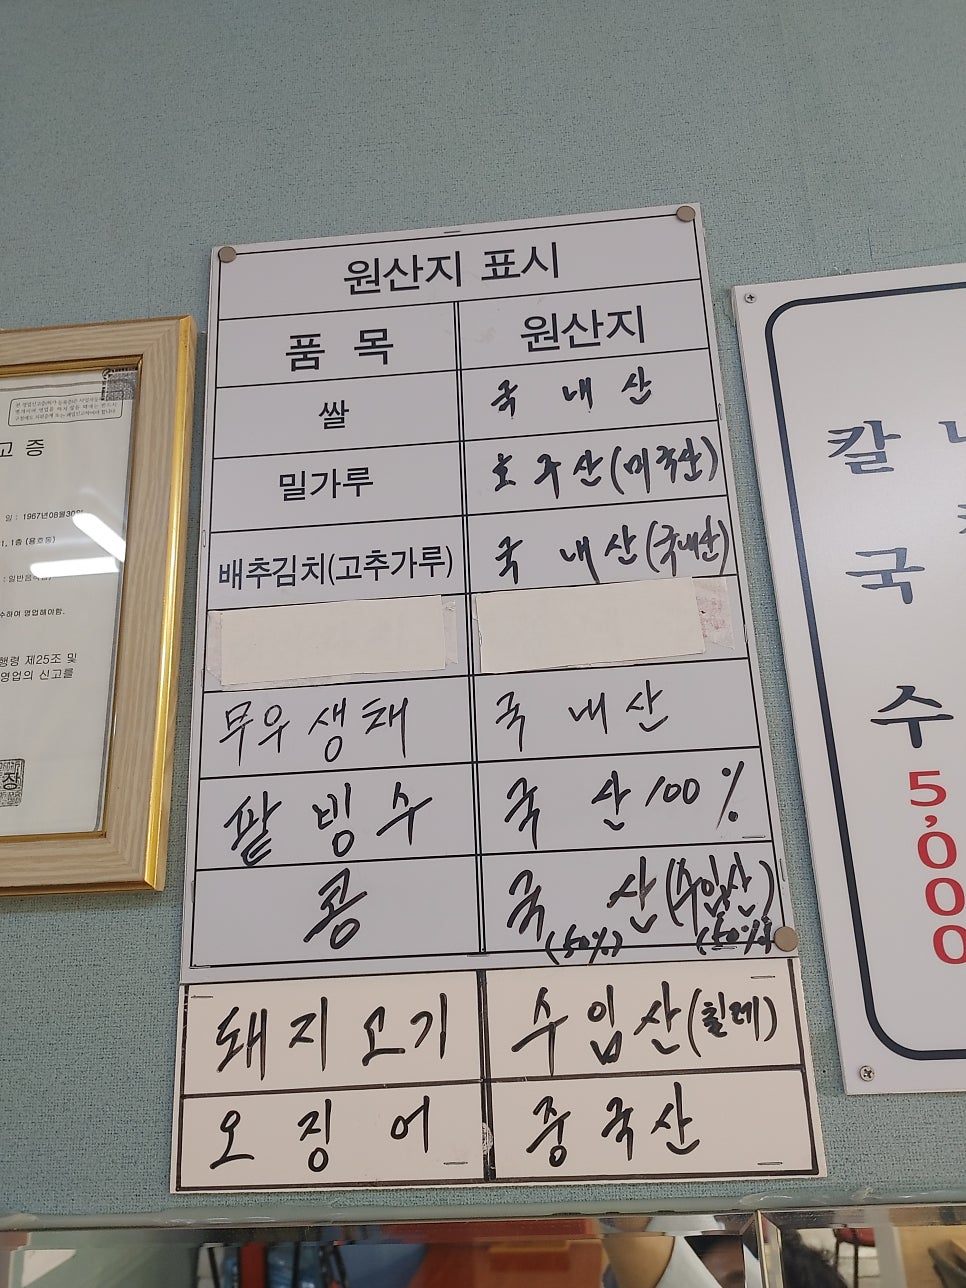 원산지 표시
품 목 원산지
쌀 국 내 산
밀가루 호 주 산 (미국산)
배추김치(고추가루) 국 내 산 (국내산)
무우 생채 국 내 산
팥 빙 수 국 산 100 %
콩 국 산 (수입산)
(50%) (50%)
돼 지 고 기 수 입 산 (칠레)
오 징 어 중 국 산
고 증
일 : 1967년08월30일
1, 1층 (용호동)
: 일반음식점
수하여 영업해야함.
행령 제25조 및
영업의 신고를
장
칼
국
수
5,000